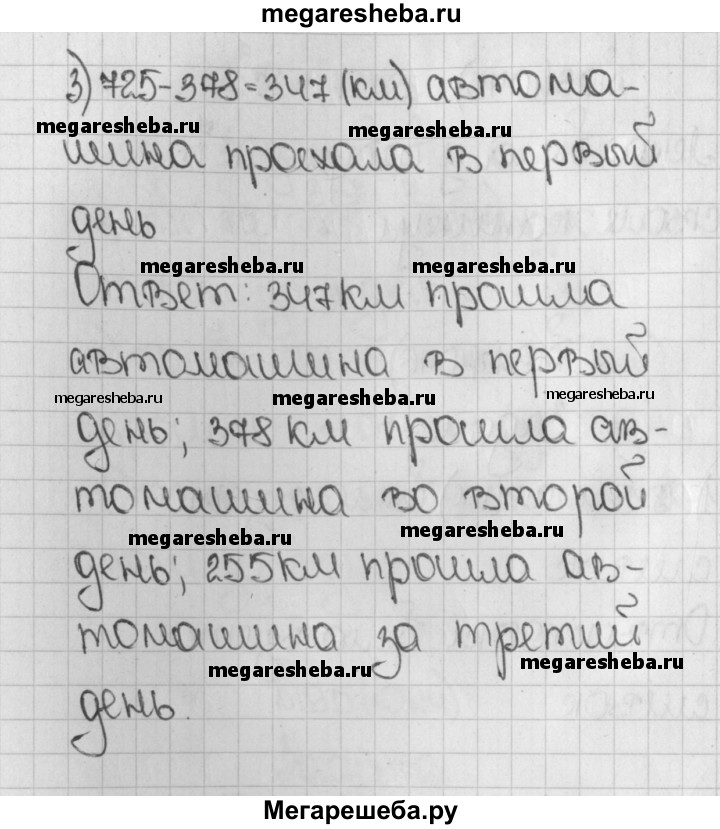 megaresheba.ru
3) 725-378=347 (км) автома-
megaresheba.ru megaresheba.ru
шина проехала в первый
день
megaresheba.ru megaresheba.ru
Ответ: 347 км прошла
автомашина в первый
megaresheba.ru megaresheba.ru megaresheba.ru
день; 378 км прошла ав-
томашина во второй
megaresheba.ru megaresheba.ru
день; 255 км прошла ав-
томашина за третий
megaresheba.ru megaresheba.ru
день.
Мегарешеба.ру